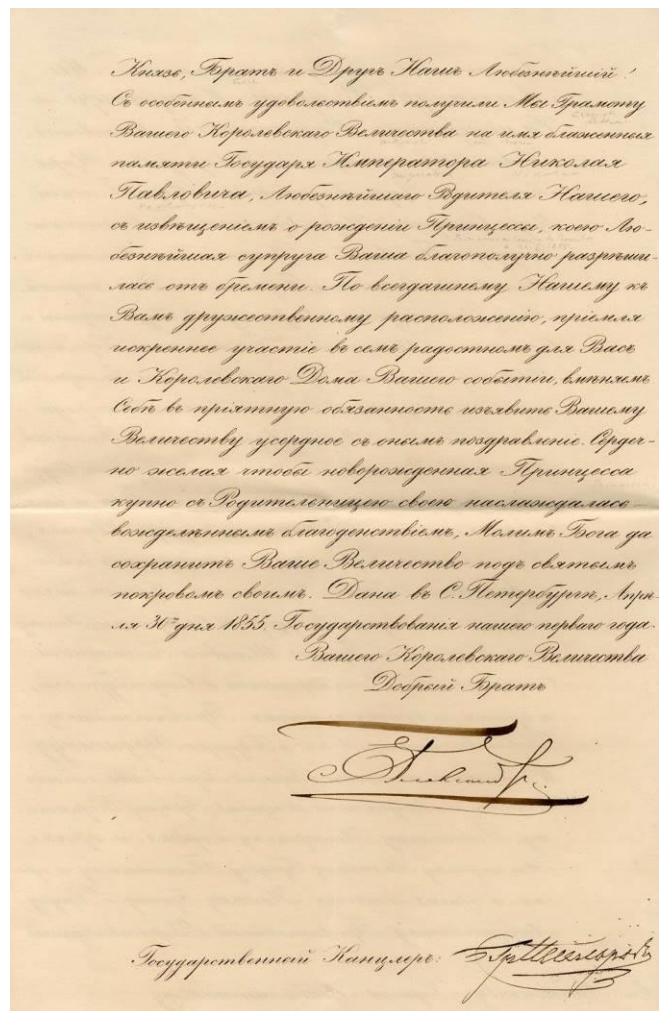 Князь, Братъ и Другъ Нашъ Любезнѣйшій!
Съ особеннымъ удовольствіемъ получили Мы Грамоту
Вашего Королевскаго Величества на имя блаженныя
памяти Государя Императора Николая
Павловича, Любезнѣйшаго Родителя Нашего,
съ извѣщеніемъ о рожденіи Принцессы, коею Лю-
безнѣйшая супруга Ваша благополучно разрѣши-
лась отъ бремени. По всегдашнему Нашему къ
Вамъ дружественному расположенію, пріемля
искреннее участіе въ семъ радостномъ для Васъ
и Королевскаго Дома Вашего событіи, вмѣняемъ
Себѣ въ пріятную обязанность изъявить Вашему
Величеству усердное съ онымъ поздравленіе. Сердеч-
но желая чтобы новорожденная Принцесса
купно съ Родительницею своею наслаждалась
вожделѣннымъ благоденствіемъ, Молимъ Бога да
сохранитъ Ваше Величество подъ святымъ
покровомъ своимъ. Дана въ С. Петербургѣ, Апрѣ-
ля 30го дня 1855. Государствованія нашего перваго года.
Вашего Королевскаго Величества
Добрый Братъ
Александръ
Государственный Канцлеръ: Гр. Нессельродъ